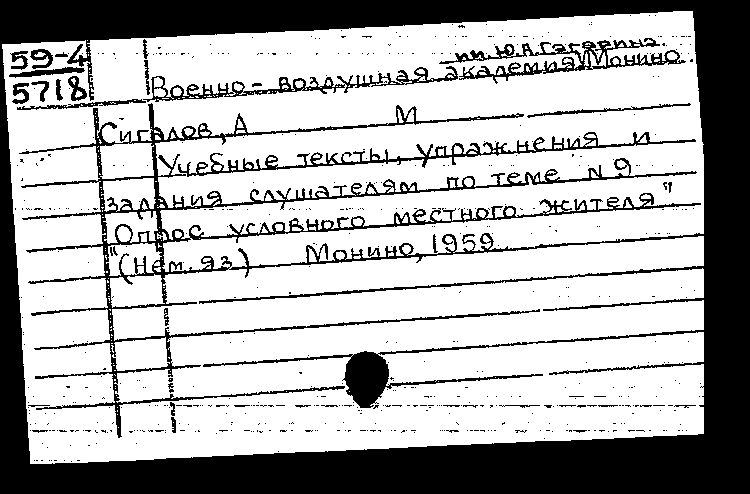 59-4
5718
им. Ю.А. Гагарина
Военно-воздушная академия Монино
Сигалов, А М
Учебные тексты, упражнения и
задания слушателям по теме N 9
"Опрос условного местного жителя"
(Нем. яз.) Монино, 1959